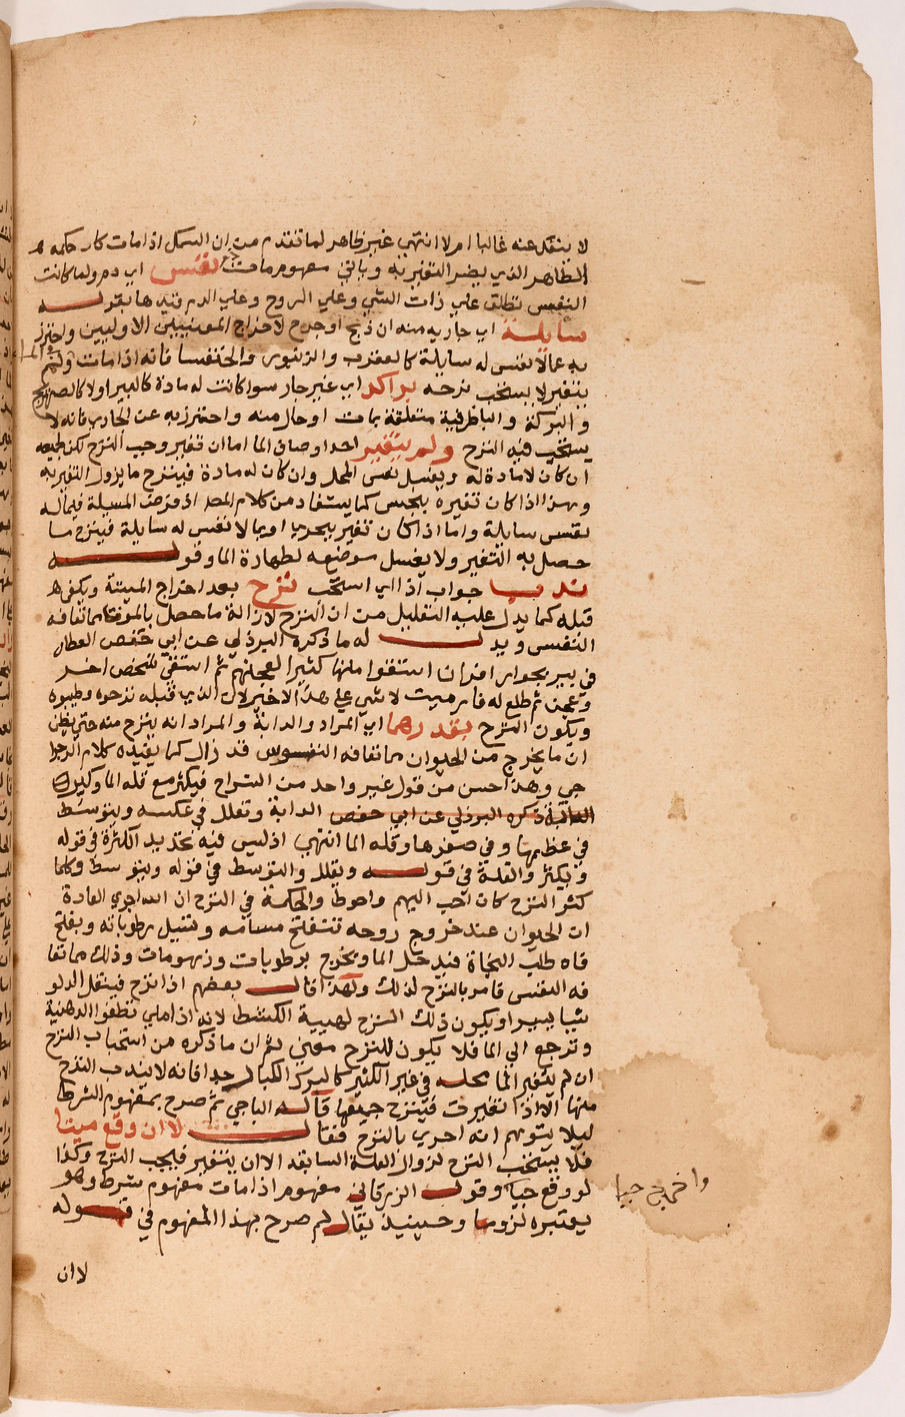 لا ينفك عنه غالبا ام لا انتهي غير ظاهر لما تقدم من ان السمك اذا مات كان حكمه ح
الظاهر الذي يضر التغير به وياتي مفهوم مات نفس اي دم ولما كانت
النفس تطلق علي ذات الشي وعلي الروح وعلي الدم قيدها بقوله
سايلة اي جارية منه ان ذبح او جرح لاخراج المعنيين الاوليين واحترز
به عما لا نفس له سايلة كالعقرب والزنبور والخنفسا فانه اذا مات ولم
يتغير لا يستحب نزحه براكد اي غير جار سوا كانت له مادة كالبير اولا كالصهريج
والبركة والبا ظرفية متعلقة بمات او حال منه واحترز به عن الجاري فانه لا
يستحب فيه النزح ولم يتغير احد اوصاف الما اما ان تغير وجب النزح لكن جميعه
ان كان لا مادة له ويغسل نفس المحل وان كان له مادة فينزح ما يزول التغير به
وهذا اذا كان تغيره بنجس كما يستفاد من كلام المص اذ فرض المسيلة فيما له
نفس سايلة واما اذا كان تغير ببحري او بما لا نفس له سايلة فينزح ما
حصل به التغير ولا يغسل موضعه لطهارة الما وقوله
ندب جواب اذا اي استحب نزح بعد اخراج الميتة ويكفي
قبله كما يدل عليه التعليل من ان النزح لازالة ما حصل بالموت مما تعافه
النفس ويدل له ما ذكره البرزلي عن ابي حفص العطار
في بير بجوار افران استقوا منها كثيرا لعجنهم ثم استقي شخص اخر
وعجن ثم طلع له فار ميت لا شي علي هذا الاخير لان الذي قبله نزحوه وطيبوه
ويكون النزح بقدرهما اي المراد والدابة والمراد انه ينزح منه حتي يظن
ان ما يخرج من الحيوان مما تعافه النفوس قد زال كما يفيده كلام الرجرا
جي وهذا احسن من قول غير واحد من الشراح فيكثر مع قلة الما وكبر
الدابة ذكره البرزلي عن ابي حفص الدابة وتقلل في عكسه ويتوسط
في عظمها وفي صغرها وقلة الما انتهي اذ ليس فيه تحديد الكثرة في قوله
ويكثر والقلة في قوله ويقلل والتوسط في قوله ويتوسط وكلما
كثر النزح كان احب اليهم واحوط والحكمة في النزح ان الله اجري العادة
ان الحيوان عند خروج روحه تنفتح مسامه وتسيل رطوباته ويفتح
فاه طلب النجاة فيدخل الما ويخرج برطوبات وزهومات وذلك مما تعا
فه النفس فامر بالنزح لذلك ولهذا قال بعضهم اذا نزح فينقل الدلو
شيا يسيرا ويكون ذلك النزح لهيبة الكشط لانه اذا ملي تطفوا الدهنية
وترجع الي الما فلا يكون للنزح معني ثم ان ما ذكره من استحباب النزح
ان لم يتغير الما محله في غير الكثير كالبرك الكبار جدا فانه لا يندب النزح
منها الا اذا تغيرت فينزح جميعها قاله الباجي ثم صرح بمفهوم الشرط
ليلا يتوهم انه احري بالنزح فقال لا ان وقع ميتا
فلا يستحب النزح لزوال العلة السابقة الا ان يتغير فيجب النزح وكذا
لو وقع حيا وقول الزرقاني مفهوم اذا مات مفهوم شرط وهو
يعتبره لزوما وحينيذ يقال لم صرح بهذا المفهوم في قوله
واخرج حيا
لا ان